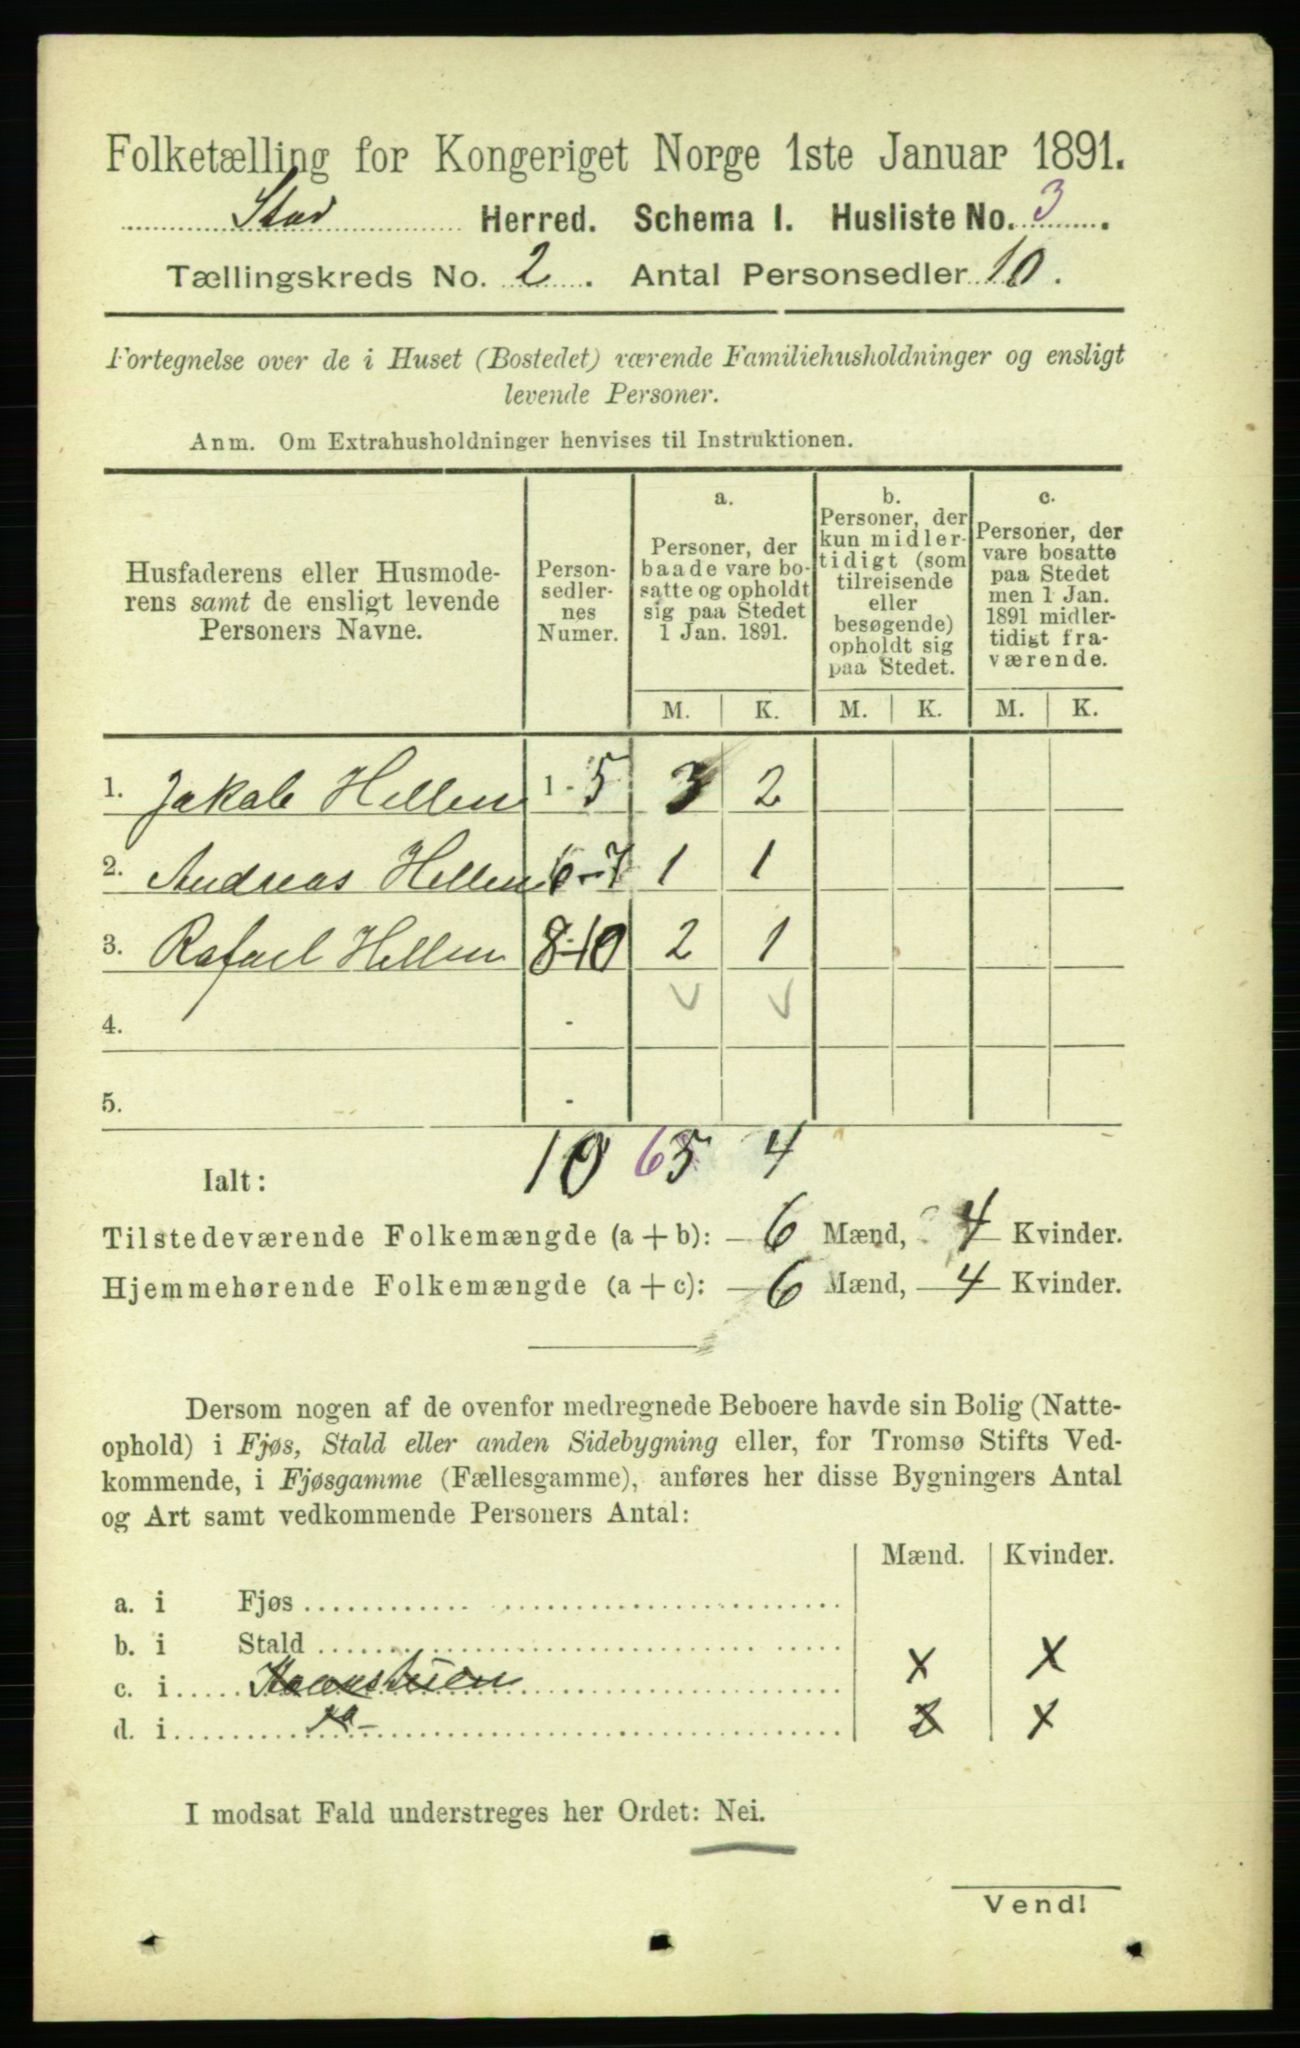 Folketælling for Kongeriget Norge 1ste Januar 1891.
Stod Herred. Schema I. Husliste No. 3.
Tællingskreds No. 2. Antal Personsedler 10.
Fortegnelse over de i Huset (Bostedet) værende Familiehusholdninger og ensligt
levende Personer.
Anm. Om Extrahusholdninger henvises til Instruktionen.
Husfaderens eller Husmode-
rens samt de ensligt levende
Personers Navne.
Person-
sedler-
nes
Numer.
a.
Personer, der
baade vare bo-
satte og opholdt
sig paa Stedet
1 Jan. 1891.
b.
Personer, der
kun midler-
tidigt (som
tilreisende
eller
besøgende)
opholdt sig
paa Stedet.
c.
Personer, der
vare bosatte
paa Stedet
men 1 Jan.
1891 midler-
tidigt fra-
værende.
M. K. M. K. M. K.
1. Jakob Hellem 1-5 3 2
2. Andreas Hellem 6-7 1 1
3. Rafael Hellem 8-10 2 1
4. -
5. -
Ialt: 10 6 5 4
Tilstedeværende Folkemængde (a + b): 6 Mænd, 4 Kvinder.
Hjemmehørende Folkemængde (a + c): 6 Mænd, 4 Kvinder.
Dersom nogen af de ovenfor medregnede Beboere havde sin Bolig (Natte-
ophold) i Fjøs, Stald eller anden Sidebygning eller, for Tromsø Stifts Ved-
kommende, i Fjøsgamme (Fællesgamme), anføres her disse Bygningers Antal
og Art samt vedkommende Personers Antal:
Mænd. Kvinder.
a. i Fjøs
b. i Stald
c. i x x
d. i x
I modsat Fald understreges her Ordet: Nei.
Vend!